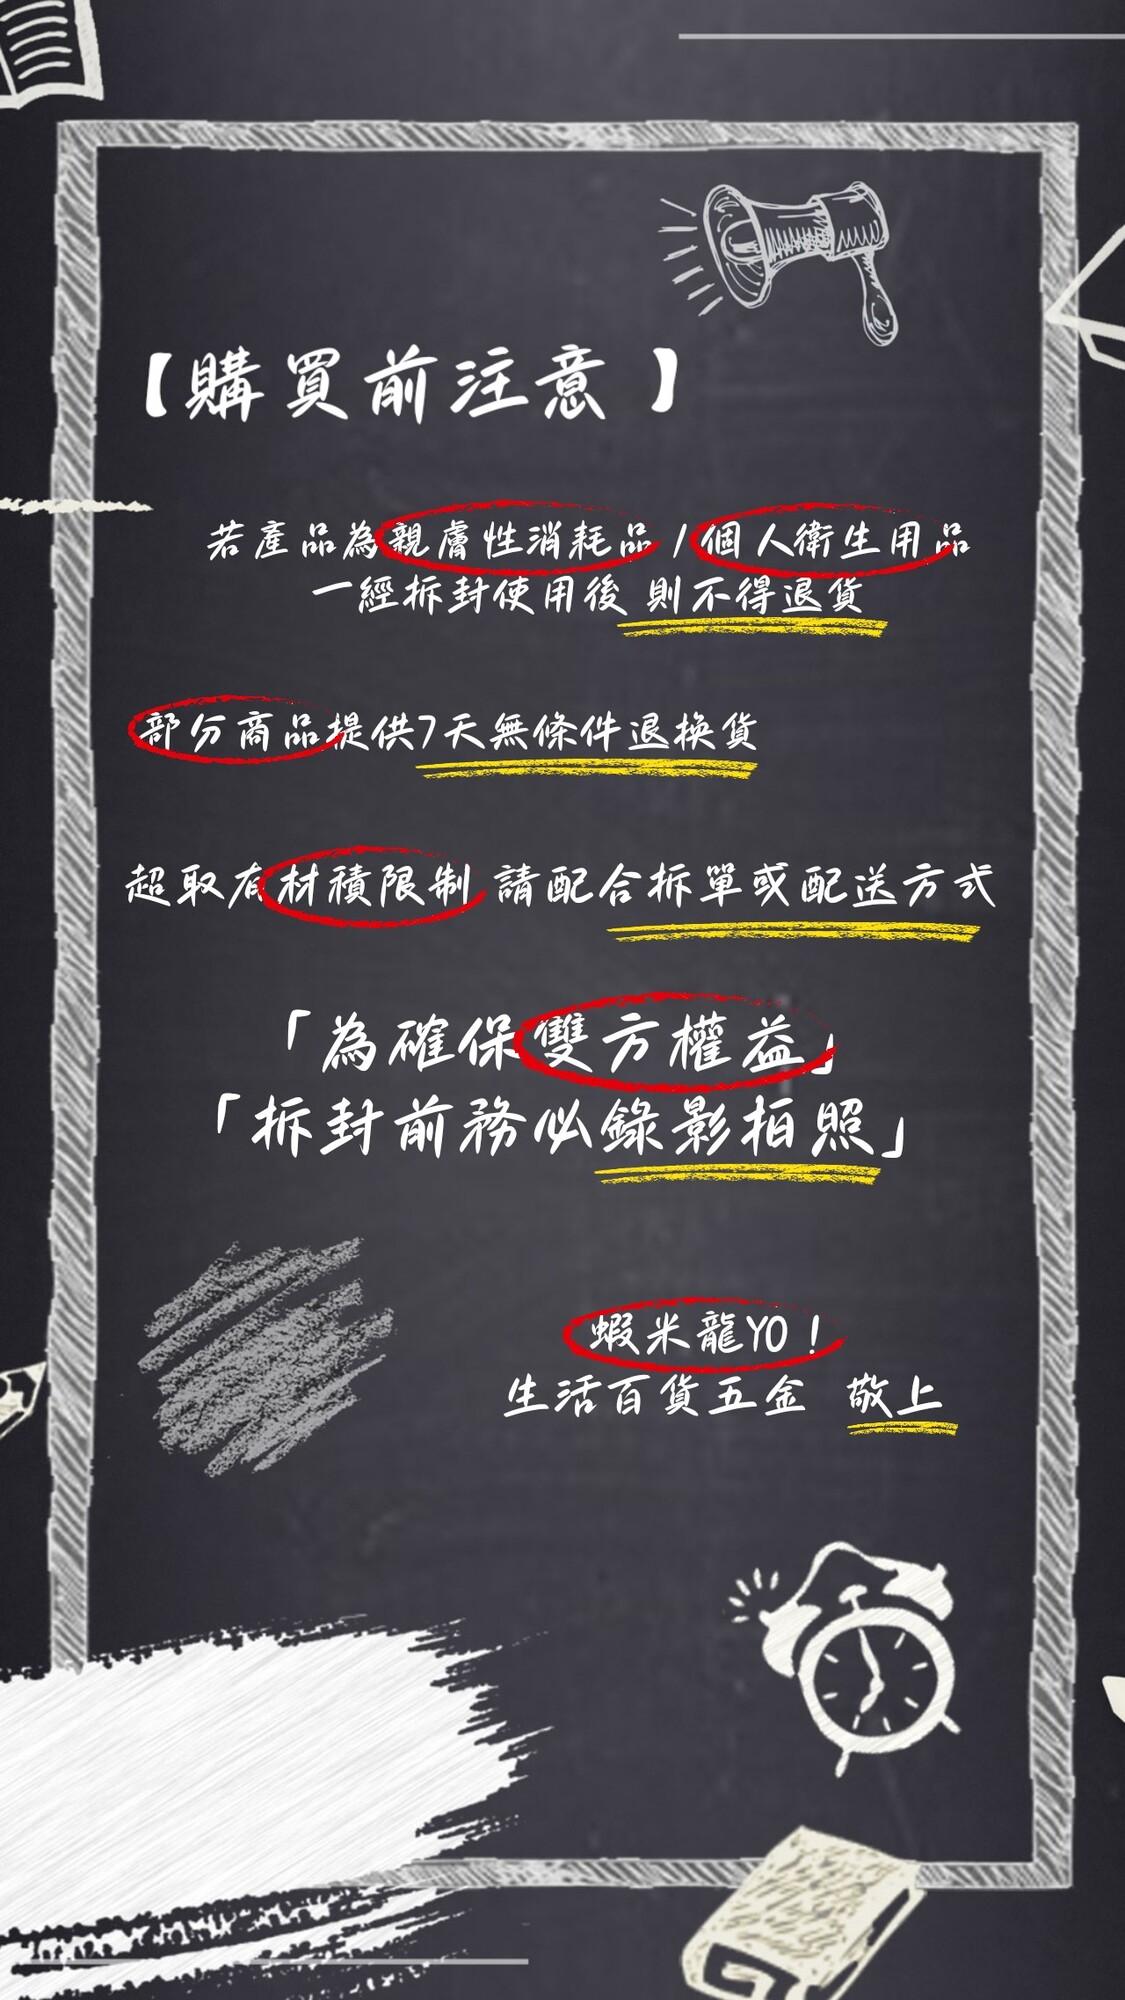 【購買前注意】
若產品為親膚性消耗品/個人衛生用品
一經拆封使用後 則不得退貨
部分商品提供7天無條件退換貨
超取有材積限制 請配合拆單或配送方式
「為確保雙方權益」
「拆封前務必錄影拍照」
蝦米龍YO！
生活百貨五金 敬上